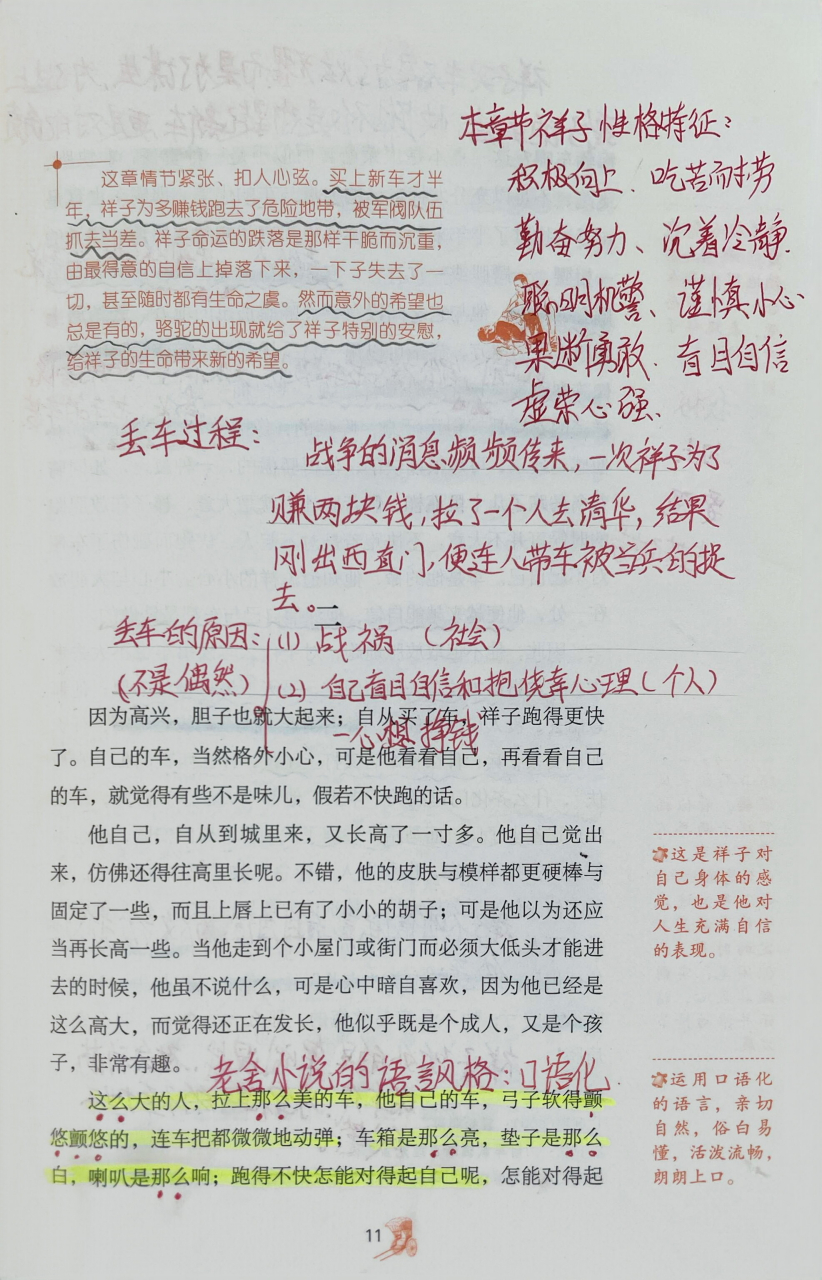 本章节祥子性格特征：
积极向上、吃苦而耐劳
勤奋努力、沉着冷静、
聪明机警、谨慎小心
果断勇敢、盲目自信
虚荣心强、
这章情节紧张、扣人心弦。买上新车才半
年，祥子为多赚钱跑去了危险地带，被军阀队伍
抓去当差。祥子命运的跌落是那样干脆而沉重，
由最得意的自信上掉落下来，一下子失去了一
切，甚至随时都有生命之虞。然而意外的希望也
总是有的，骆驼的出现就给了祥子特别的安慰，
给祥子的生命带来新的希望。
丢车过程：
战争的消息频频传来，一次祥子为了
赚两块钱，拉了一个人去清华，结果
刚出西直门，便连人带车被当兵的捉
去。
二
丢车的原因：(1) 战祸（社会）
（不是偶然） (2) 自己盲目自信和抱侥幸心理（个人）
一心想挣钱
因为高兴，胆子也就大起来；自从买了车，祥子跑得更快
了。自己的车，当然格外小心，可是他看看自己，再看看自己
的车，就觉得有些不是味儿，假若不快跑的话。
他自己，自从到城里来，又长高了一寸多。他自己觉出
来，仿佛还得往高里长呢。不错，他的皮肤与模样都更硬棒与
固定了一些，而且上唇上已有了小小的胡子；可是他以为还应
当再长高一些。当他走到个小屋门或街门而必须大低头才能进
去的时候，他虽不说什么，可是心中暗自喜欢，因为他已经是
这么高大，而觉得还正在发长，他似乎既是个成人，又是个孩
子，非常有趣。
老舍小说的语言风格：口语化
这么大的人，拉上那么美的车，他自己的车，弓子软得颤
悠颤悠的，连车把都微微地动弹；车箱是那么亮，垫子是那么
白，喇叭是那么响；跑得不快怎能对得起自己呢，怎能对得起
这是祥子对
自己身体的感
觉，也是他对
人生充满自信
的表现。
运用口语化
的语言，亲切
自然，俗白易
懂，活泼流畅，
朗朗上口。
11